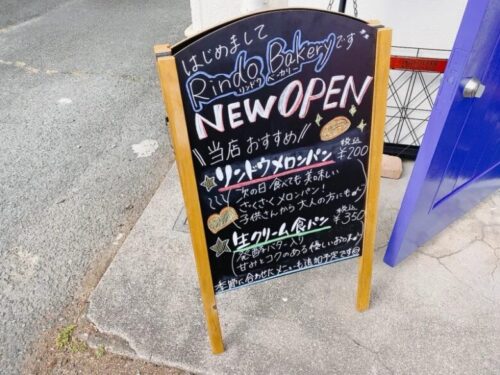 はじめまして
Rindo Bakeryです
リンドウ ベーカリー
NEW OPEN
\\当店おすすめ//
☆リンドウメロンパン 税込¥200
次の日食べても美味しい
さくさくメロンパン!
子供さんから大人の方にも♪
☆生クリーム食パン 税込¥350
発酵バター入り
甘みとコクのある優しいお味♪
季節に合わせたメニューも追加予定です☺